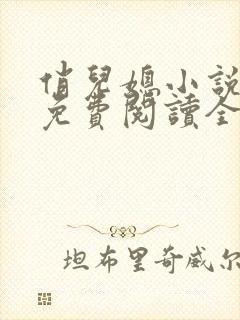 俏兒媳小說
免費閱讀全
坦布里奇威尔